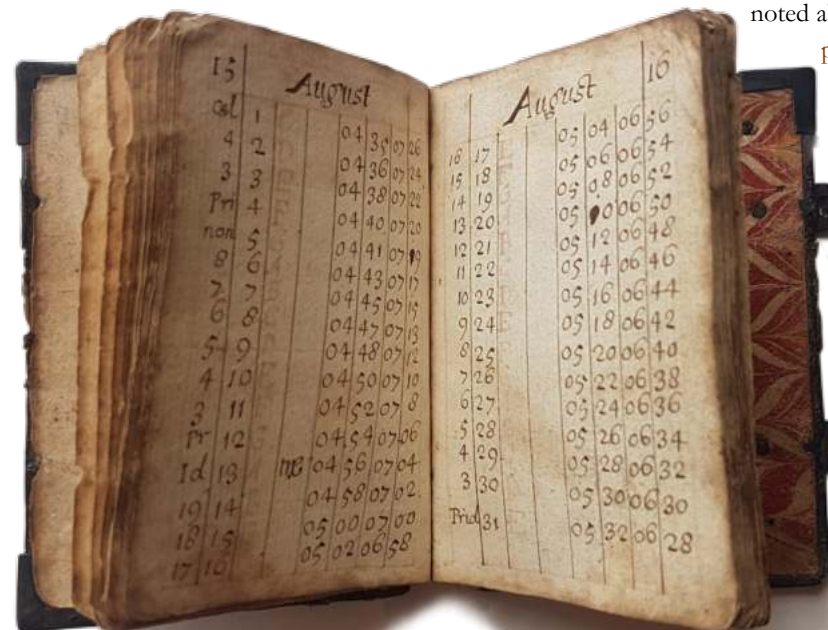 noted
15 August
Cal 1 04 35 07 26
4 2 04 36 07 24
3 3 04 38 07 22
Pri 4 04 40 07 20
non 5 04 41 07 19
8 6 04 43 07 17
7 7 04 45 07 15
6 8 04 47 07 13
5 9 04 48 07 12
4 10 04 50 07 10
3 11 04 52 07 8
Pr 12 04 54 07 06
Id 13 04 56 07 04
19 14 04 58 07 02
18 15 05 00 07 00
17 16 05 02 06 58
August 16
16 17 05 04 06 56
15 18 05 06 06 54
14 19 05 08 06 52
13 20 05 10 06 50
12 21 05 12 06 48
11 22 05 14 06 46
10 23 05 16 06 44
9 24 05 18 06 42
8 25 05 20 06 40
7 26 05 22 06 38
6 27 05 24 06 36
5 28 05 26 06 34
4 29 05 28 06 32
3 30 05 30 06 30
Prid 31 05 32 06 28